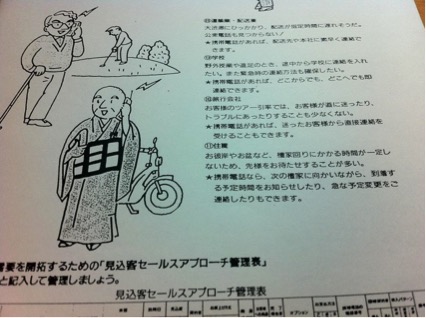 ⑧運輸業・配送業
大渋滞にひっかかり、配送が指定時間に遅れそうだ。
公衆電話も見つからない!
★携帯電話があれば、配送先や本社に素早く連絡で
きます。
⑨学校
野外授業や遠足のとき、途中から学校に連絡を入れ
たい。また緊急時の連絡方法も確保したい。
★携帯電話があれば、どこからでも、どこへでも即
連絡できます。
⑩旅行会社
お客様のツアー引率では、お客様が道に迷ったり、
トラブルにあったりすることも少なくない。
★携帯電話があれば、迷ったお客様から直接連絡を
受けることもできます。
⑪住職
お彼岸やお盆など、檀家回りにかかる時間が一定し
ないため、先様をお待たせすることが多い。
★携帯電話なら、次の檀家に向かいながら、到着す
る予定時間をお知らせしたり、急な予定変更をご
連絡したりもできます。
需要を開拓するための「見込客セールスアプローチ管理表」
と記入して管理しましょう。
見込客セールスアプローチ管理表
オプション